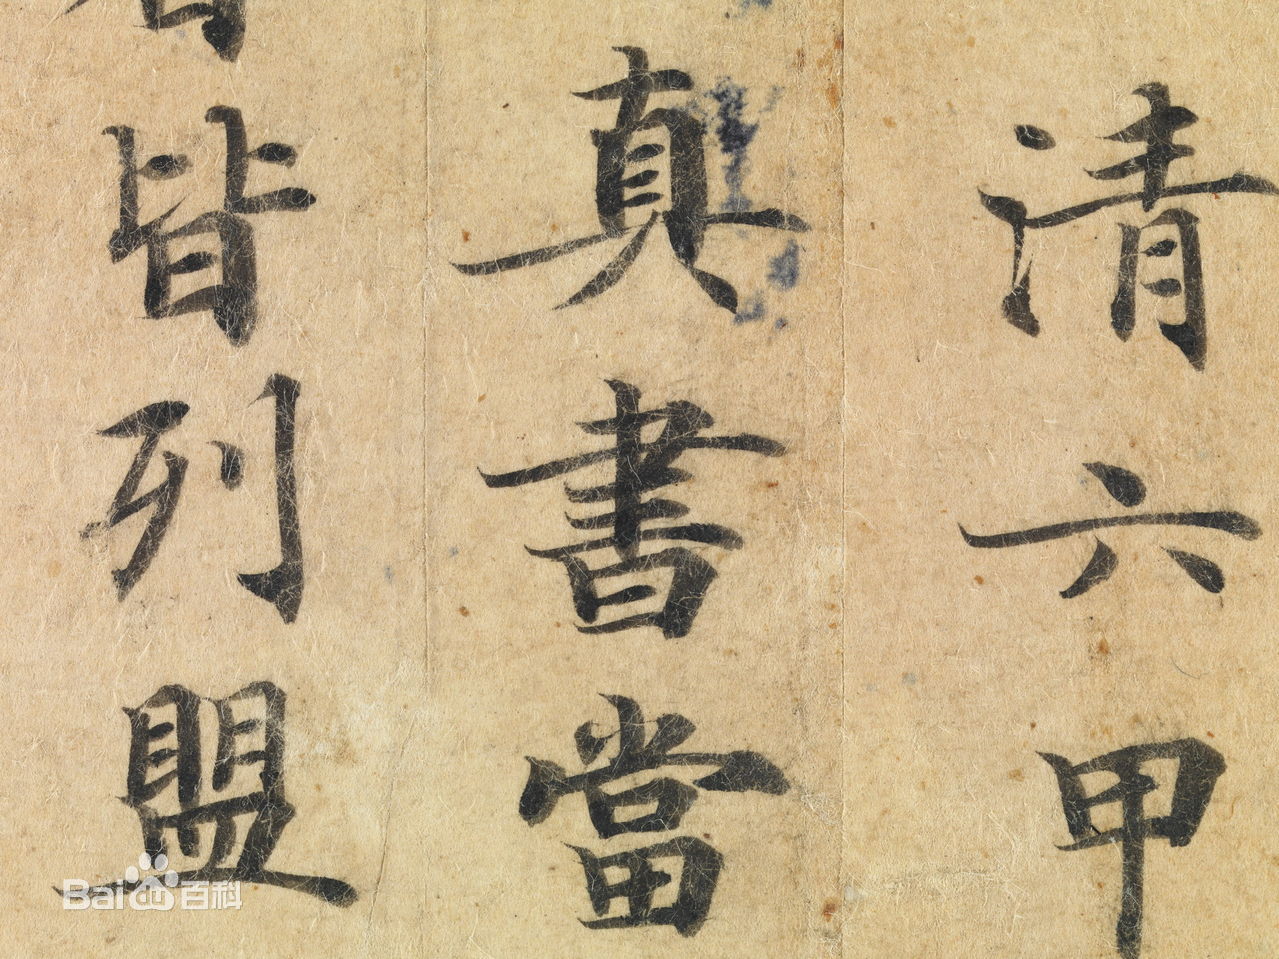 清六甲
真書當
皆列盟
Bai du 百科